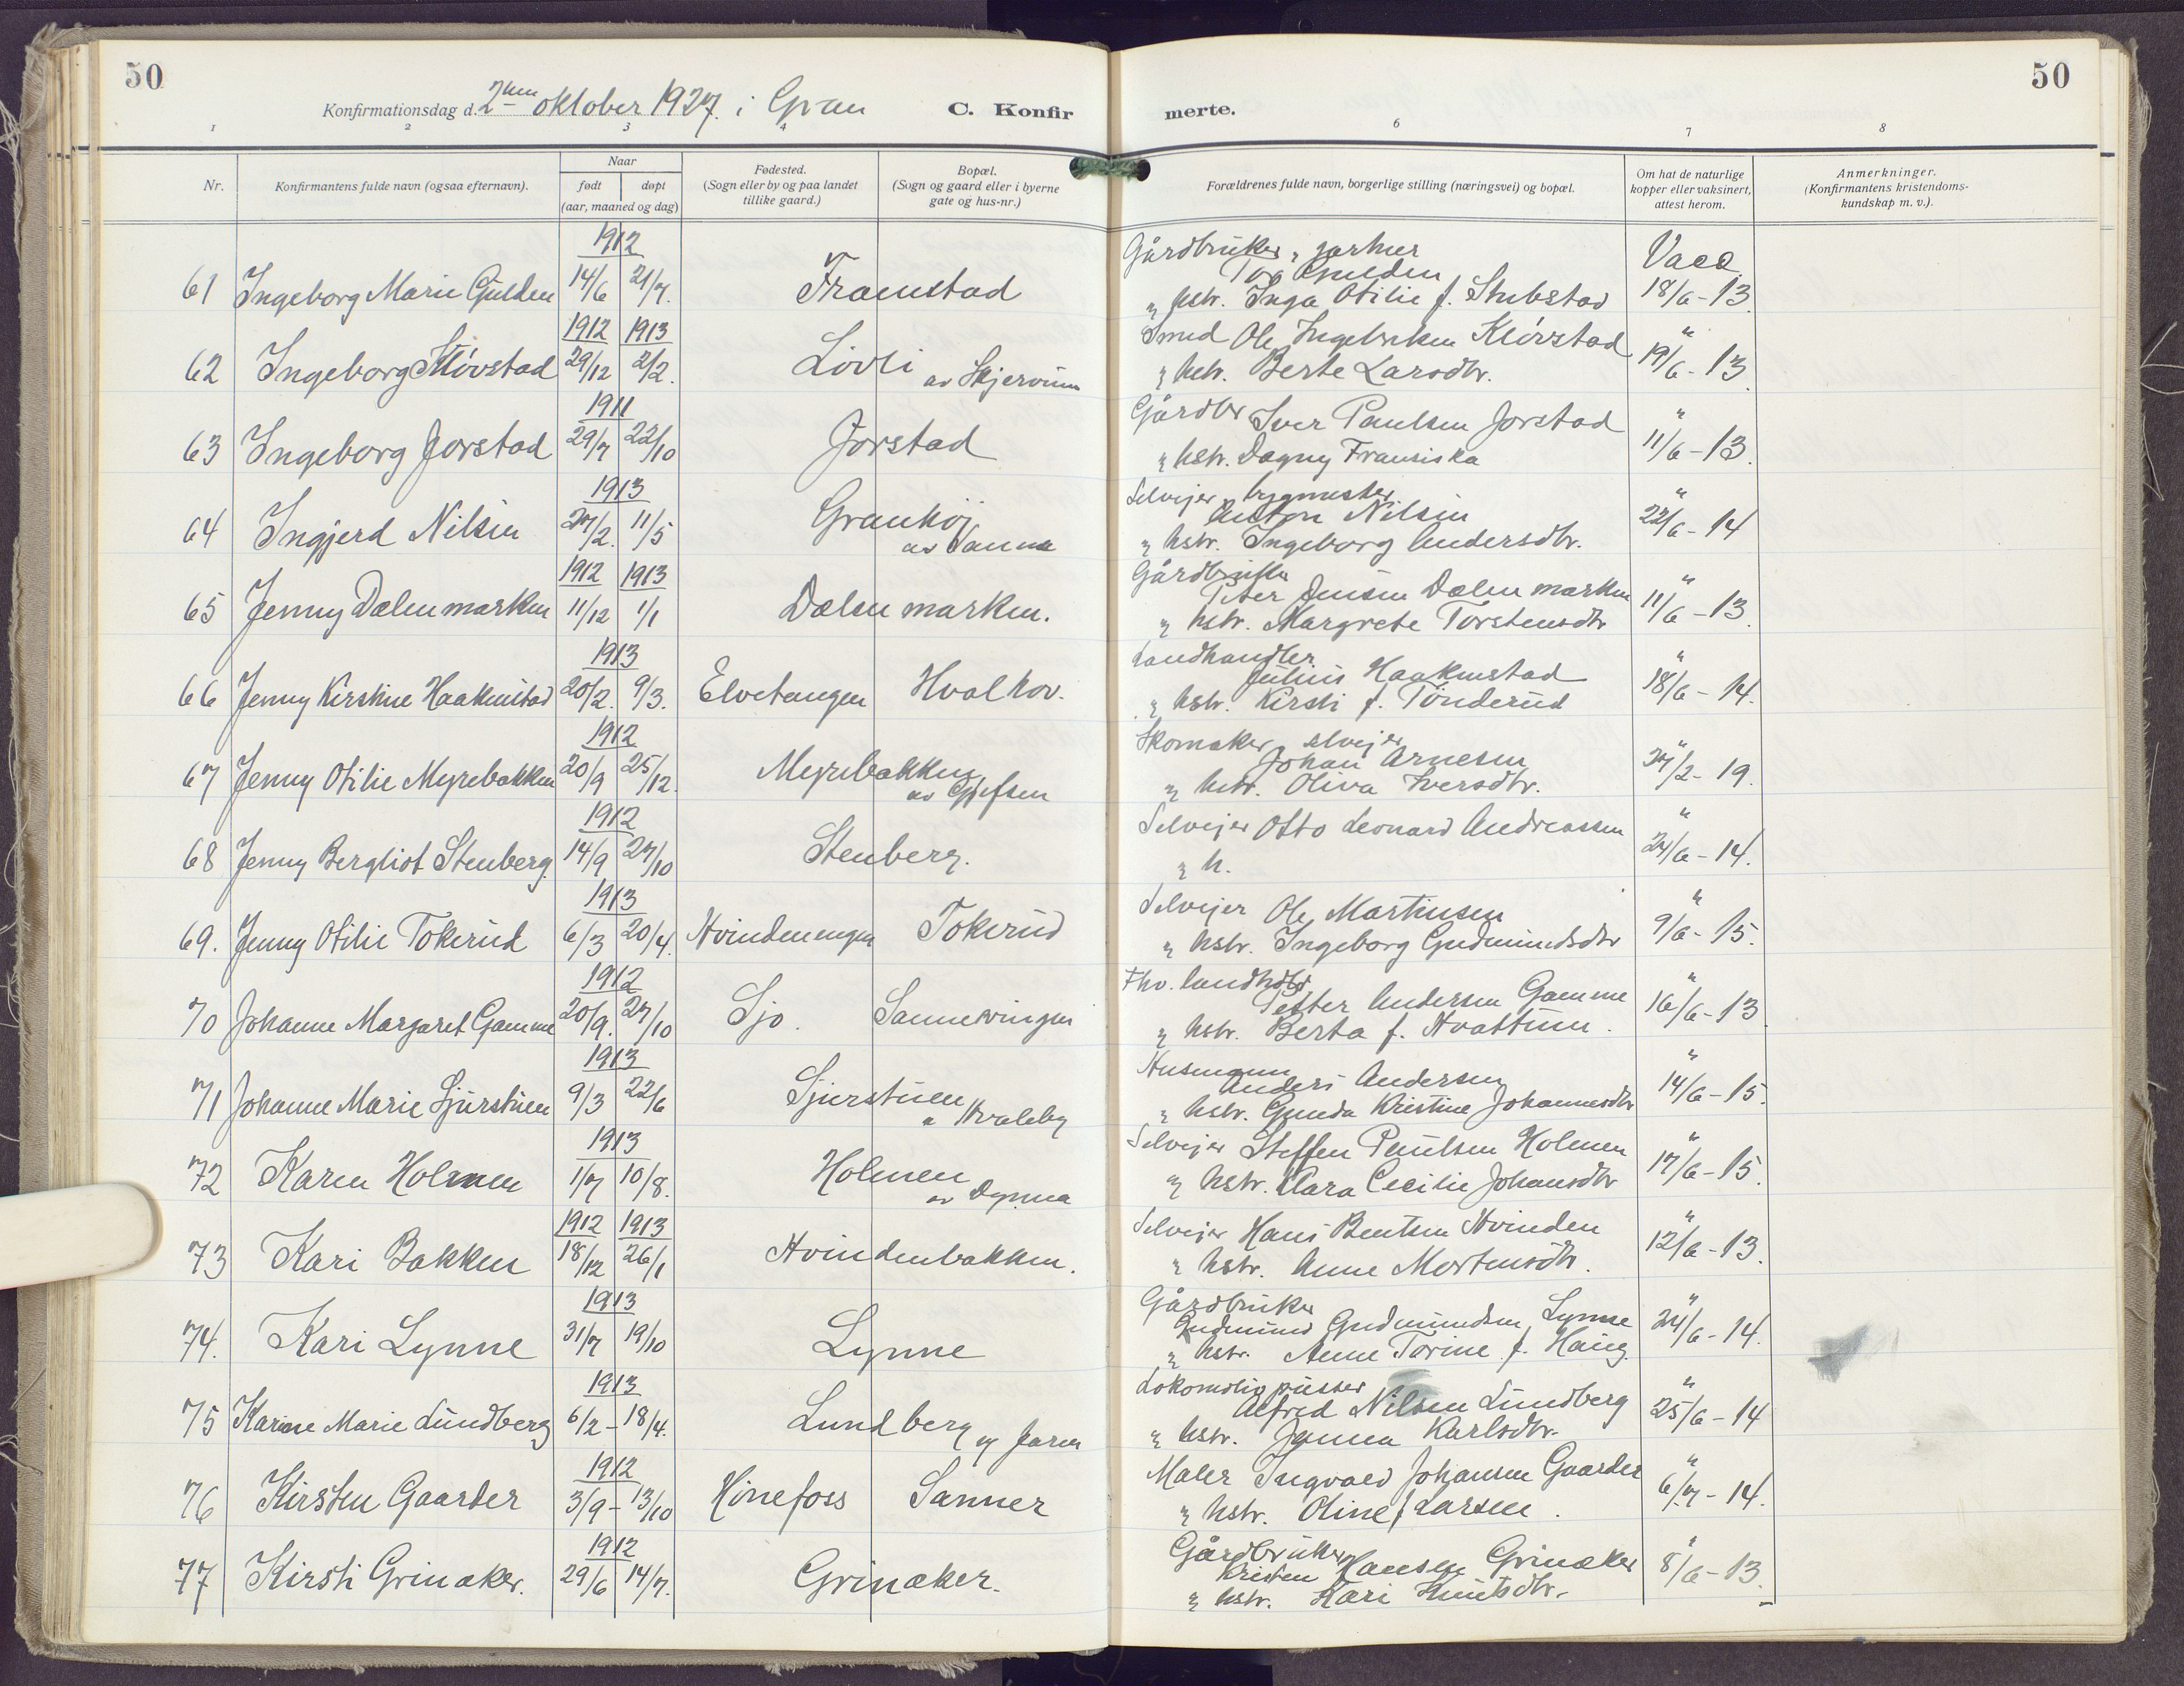 50
50
Konfirmationsdag d. 2den oktober 1927. i Gran
C. Konfir
merte.
1 2 3 4 6 7 8
Nr.
Konfirmantens fulde navn (ogsaa efternavn).
Naar
født døpt
(aar, maaned og dag)
Fødested.
(Sogn eller by og paa landet
tillike gaard.)
Bopæl.
(Sogn og gaard eller i byerne
gate og hus-nr.)
Forældrenes fulde navn, borgerlige stilling (næringsvei) og bopæl.
Om hat de naturlige
kopper eller vaksinert,
attest herom.
Anmerkninger.
(Konfirmantens kristendoms-
kundskap m. v.).
1912
Gårdbruker,
61 Ingeborg Marie Gulden 14/6 21/7. Framstad
Gulden
Vacc.
" hstr. Inga Otilie f. Stubstad 18/6-13.
1912 1913
62 Ingeborg Kløvstad 29/12 2/2. Lövli av Skjervum
Smed Ole Ingebriksen Kløvstad " 19/6-13.
" hstr. Berte Larsdtr.
1911
63 Ingeborg Jorstad 29/7 22/10 Jorstad
Gårdbr Iver Paulsen Jorstad " 11/6-13.
" hstr. Dagny Fransiska
1913
64 Ingjerd Nilsen 27/2. 11/5 Granhöj av Sanne
Selvejer, bygmester
Anton Nilsen " 22/6-14
" hstr. Ingeborg Andersdtr.
1912 1913
65 Jenny Dælenmarken 11/12 1/1 Dælenmarken.
Gårdbruker
Peter Jensen Dælenmarken " 11/6-13.
" hstr. Margrete Torstensdtr
1913
66 Jenny Kirstine Haakenstad 20/2. 9/3. Elvetangen Hval hov.
Landhandler
Julius Haakenstad " 18/6-14.
" hstr. Kirsti f. Tönderud
1912
67 Jenny Otilie Myrebakken 20/9 25/12. Myrebakken av Gjefsen
Skomaker, selvejer
Johan Arnesen " 27/2-19.
" hstr. Oliva Iversdtr.
1912
68 Jenny Bergliot Stenberg. 14/9 27/10 Stenberg.
Selvejer Otto Leonard Andreassen " 24/6-14.
" h.
1913
69. Jenny Otilie Tokerud 6/3 20/4. Hvindenengen Tokerud
Selvejer Ole Martinsen " 9/6-15.
" hstr. Ingeborg Gudmundsdtr
1912
70 Johanne Margaret Gamme 20/9. 27/10 Sjo. Sannesvingen
Fhv. landhdlr
Petter Andersen Gamme " 16/6-13.
" hstr. Berta f. Hvattum.
1913
71 Johanne Marie Sjurstuen 9/3 22/6 Sjurstuen a Kvaleby
Husmann
Anders Andersen " 14/6-15.
" hstr. Gunda Kristine Johannesdtr
1913
72 Karen Holmen 1/7 10/8. Holmen av Dynna
Selvejer Steffen Paulsen Holmen " 17/6-15.
" hstr. Klara Cecilie Johansdtr
1912 1913
73 Kari Bakken 18/12 26/1 Hvindenbakken.
Selvejer Hans Bentsen Hvinden " 12/6-13.
" hstr. Anne Mortensdtr.
1913
74. Kari Lynne 31/7 19/10 Lynne
Gårdbruker
Gudmund Gudmundsen Lynne " 24/6-14.
" hstr. Anne Torine f. Haug.
1913
75 Karine Marie Lundberg 6/2-18/4. Lundberg Jaren
Lokomotivpusser
Alfred Nilsen Lundberg " 25/6-14
" hstr. Janna Karlsdtr.
1912
76 Kirsten Gaarder 3/9-13/10 Hönefoss Sanner
Maler Ingvald Johansen Gaarder " 6/7-14.
" hstr. Oline f Larsen.
1912
77 Kirsti Grinaker. 29/6 14/7. Grinaker.
Gårdbruker
Kristen Hansen Grinaker " 8/6-13.
" hstr. Kari Knutsdtr.